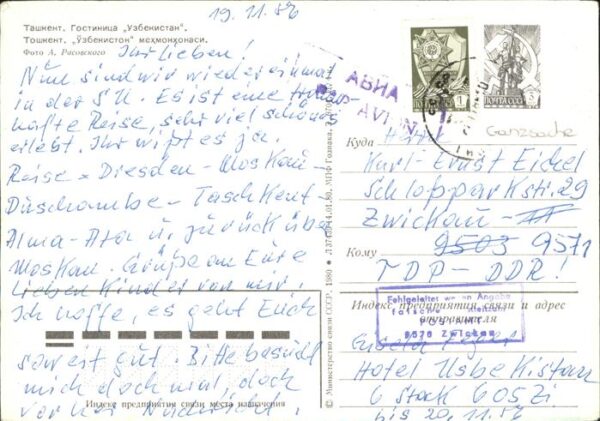 19.11.86
Ташкент. Гостиница „Узбекистан".
Тошкент. „Ўзбекистон" меҳмонхонаси.
Фото А. Расовского
Ihr Lieben!
Nun sind wir wieder einmal
in der SU. Es ist eine
hafte Reise, sehr viel schönes
erlebt. Ihr wißt es ja.
Reise = Dresden - Moskau -
Duschambe - Taschkent -
Alma-Ata u. zurück über
Moskau. Grüße an Eure
lieben Kinder von mir.
Ich hoffe, es geht Euch
sowest gut. Bitte
mich doch mal, doch
vorher Nachricht!
Индекс предприятия связи места назначения
© Министерство связи СССР. 1980
АВИА
PAR AVION
ПОЧТА СССР
1
Ganzsache
Куда
Karl-Ernst Eichel
Schlopparkstr. 29
Zwickau -
9503 9571
Кому
TDP- DDR!
Индекс предприятия связи и адрес
отправителя
Fehlgeleitet wegen Angabe
falscher Postleitzahl
POSTAMT
9570 Zwickau
Gisela
Hotel Usbekistan
6 stock 605 Zi.
bis 20.11.86